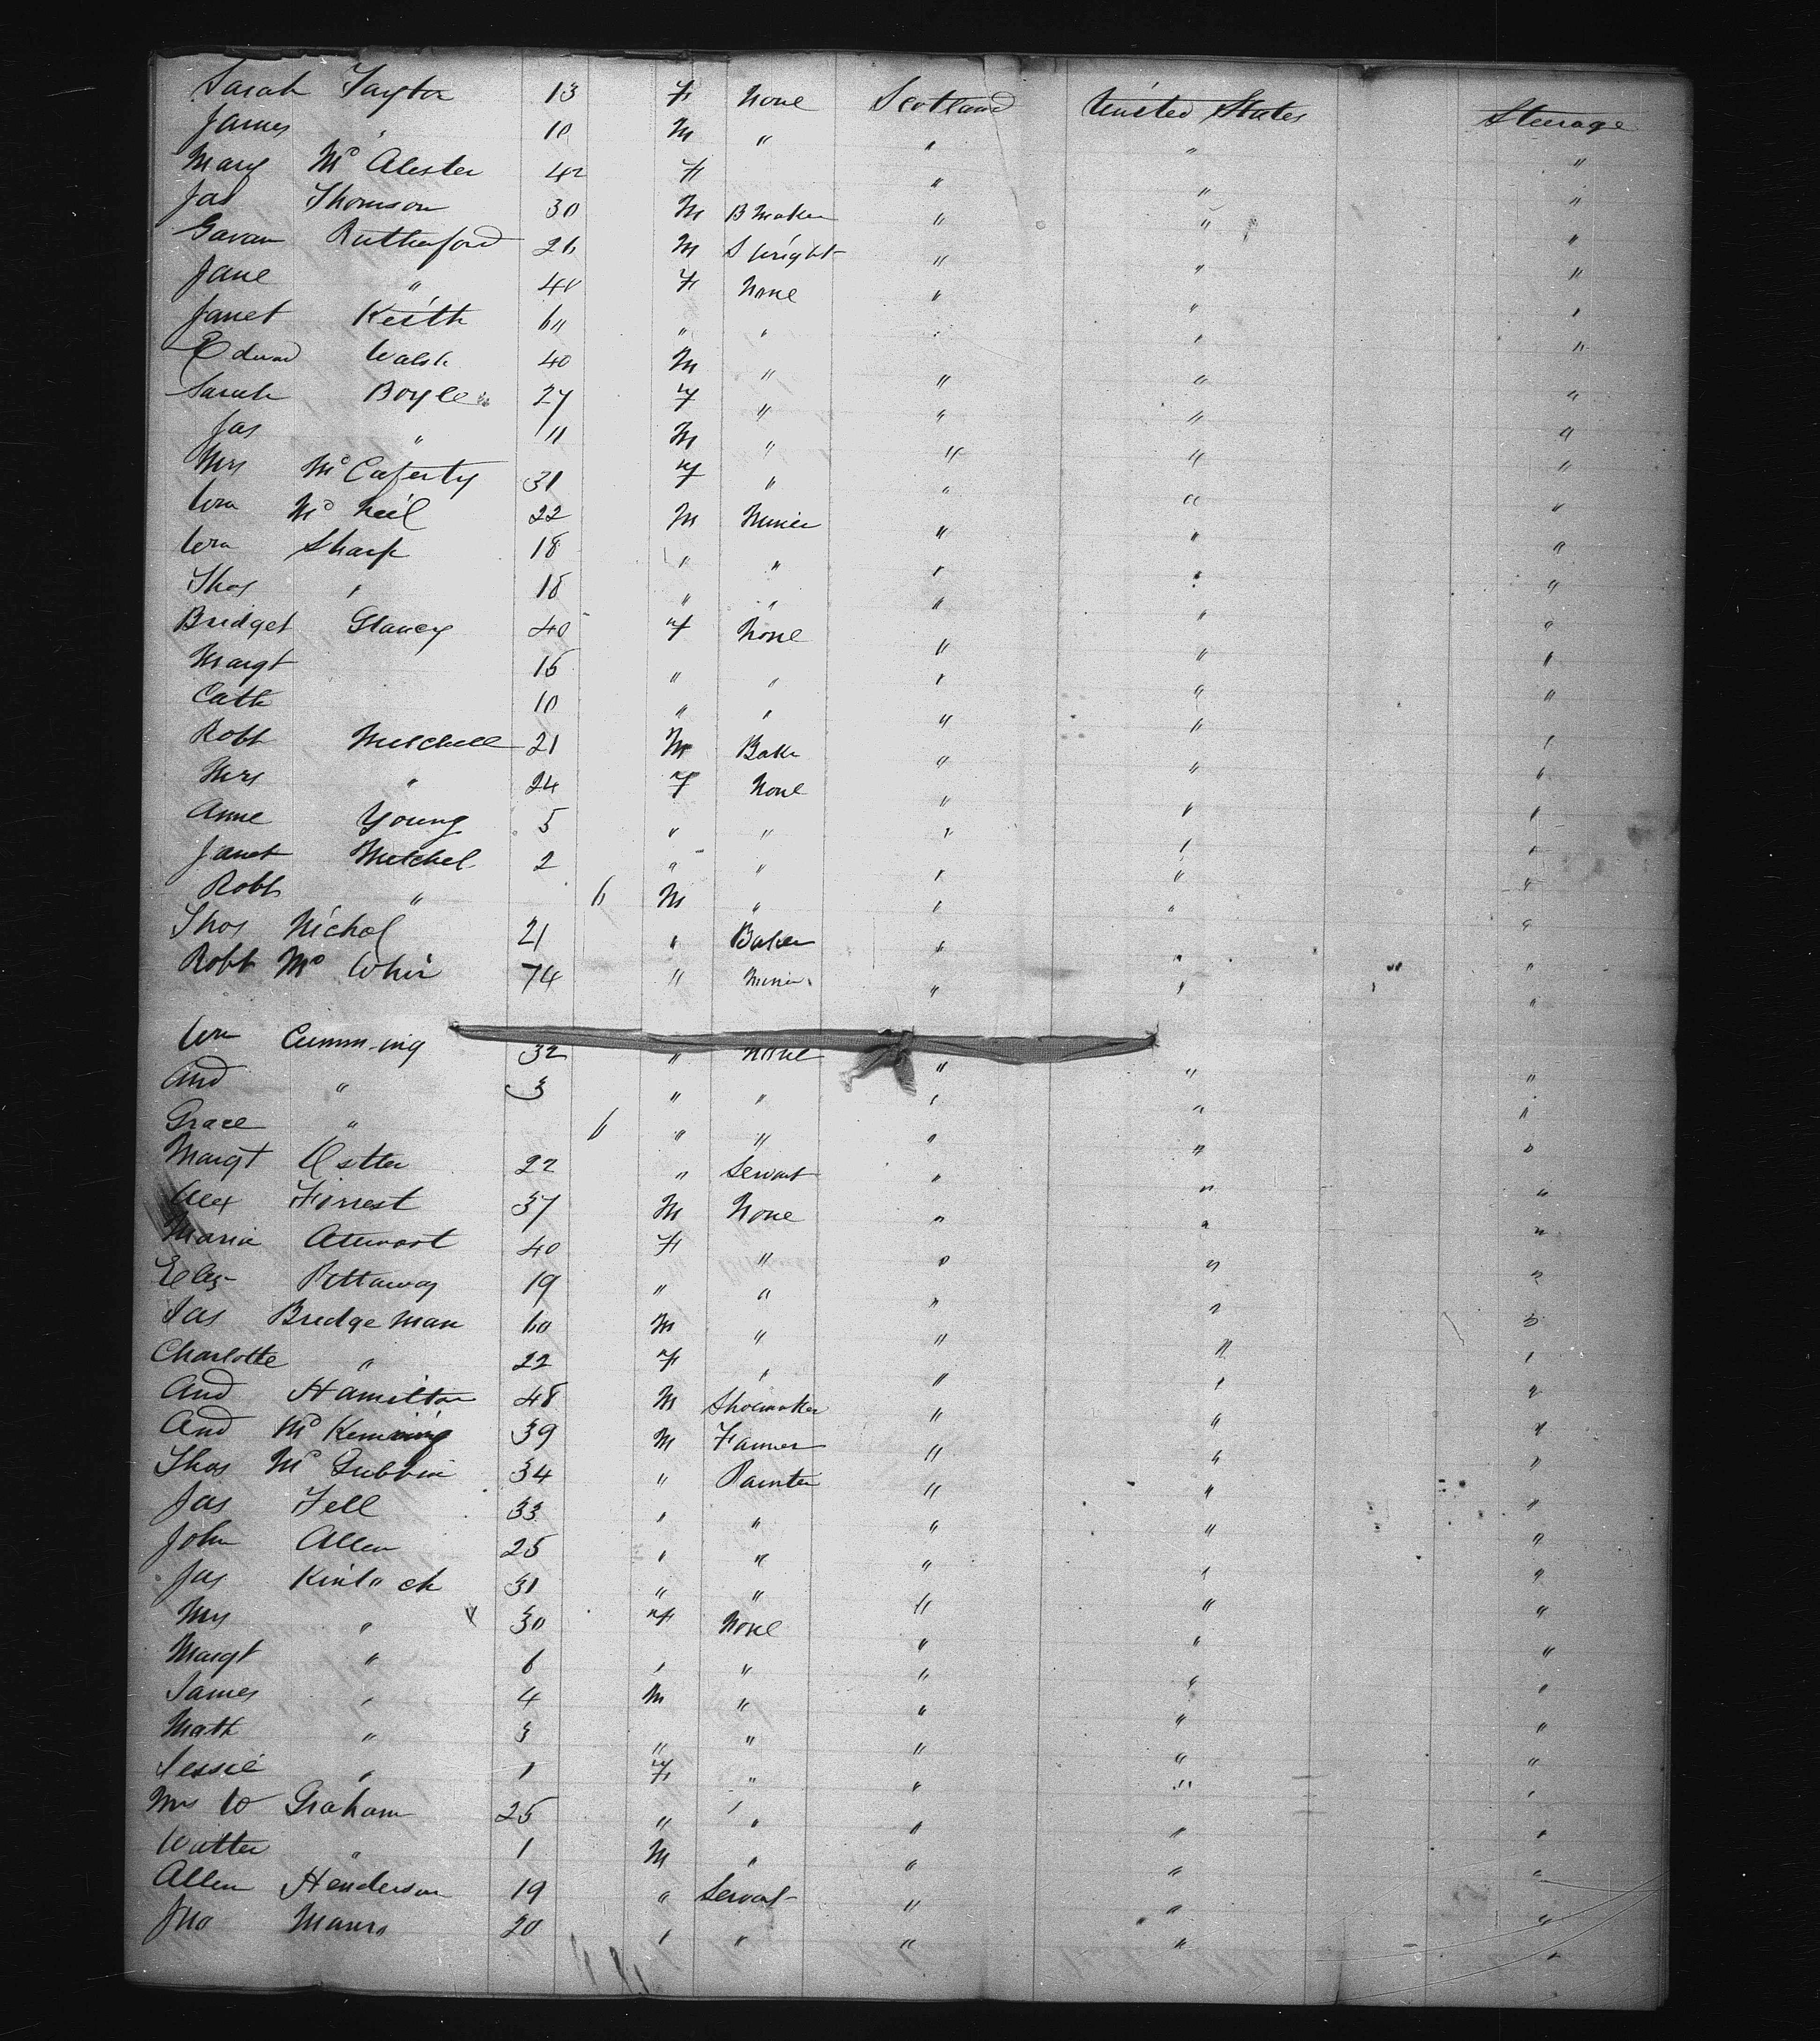 Sarah Taylor 13 F None Scotland United States Steerage
James " 10 M " " " "
Mary McAlester 42 F " " "
Jas Thomson 30 M B Maker " " "
Gavan Rutherford 26 M S Wright " " "
Jane " 40 F None " " "
Janet Keith 60 " " " " "
Edward Walsh 40 M " " " "
Sarah Boyle 27 F " " " "
Jas " 11 M " " " "
Mrs McCaferty 31 F " " " "
Wm McNeil 22 M Miner " " "
Wm Sharp 18 " " " " "
Thos " 18 " " " " "
Bridget Glancy 40 F None " " "
Margt 15 " " " " "
Cath 10 " " " " "
Robt Mitchell 21 M Baker " " "
Mrs " 24 F None " " "
Anne Young 5 " " " " "
Janet Mitchel 2 " " " " "
Robt " 6 M " " " "
Thos Nichol 21 " Baker " " "
Robt McWhir 74 " Miner " " "
Wm Cumming 32 " None " " "
And " 3 " " " " "
Grace " 6 " " " " "
Margt 22 " Servant " " "
Alex Forrest 37 M None " " "
Maria 40 F " " " "
Eliz Pettaway 19 " " " " "
Jas Bridgeman 60 M " " " "
Charlotte " 22 F " " " "
And Hamilton 48 M Shoemaker " " "
And 39 M Farmer " " "
Thos McGubbin 34 " Painter " " "
Jas Fell 33 " " " " "
John Allen 25 " " " " "
Jas Kinloch 31 " " " " "
Mrs " 30 F None " " "
Margt " 6 " " " " "
James " 4 M " " " "
Math " 3 " " " " "
Jessie " 1 F " " " "
Mrs W Graham 25 " " " " "
Walter " 1 M " " " "
Allen Henderson 19 " Servant " " "
Jno 20 " " " " "